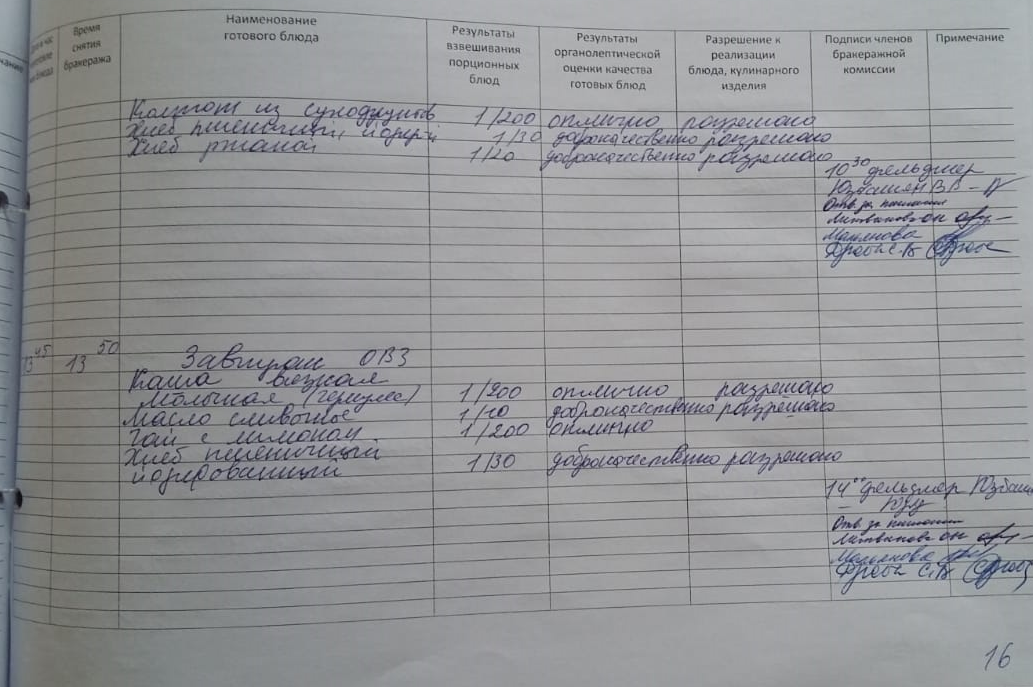 Время снятия бракеража
Наименование готового блюда
Результаты взвешивания порционных блюд
Результаты органолептической оценки качества готовых блюд
Разрешение к реализации блюда, кулинарного изделия
Подписи членов бракеражной комиссии
Примечание
Компот из сухофруктов 1/200 отлично разрешаю
Хлеб пшеничный 1/30 доброкачественно разрешаю
Хлеб ржаной 1/20 доброкачественно разрешаю
10 30 фельдшер
Отв за питание
Дробы С.В
13 50 Завтрак ОВЗ
Каша вязкая
молочная (геркулес) 1/200 отлично разрешаю
Масло сливочное 1/10 доброкачественно разрешаю
Чай с лимоном 1/200 отлично
Хлеб пшеничный
йодированный 1/30 доброкачественно разрешаю
14 00 фельдшер
Отв за питание
16